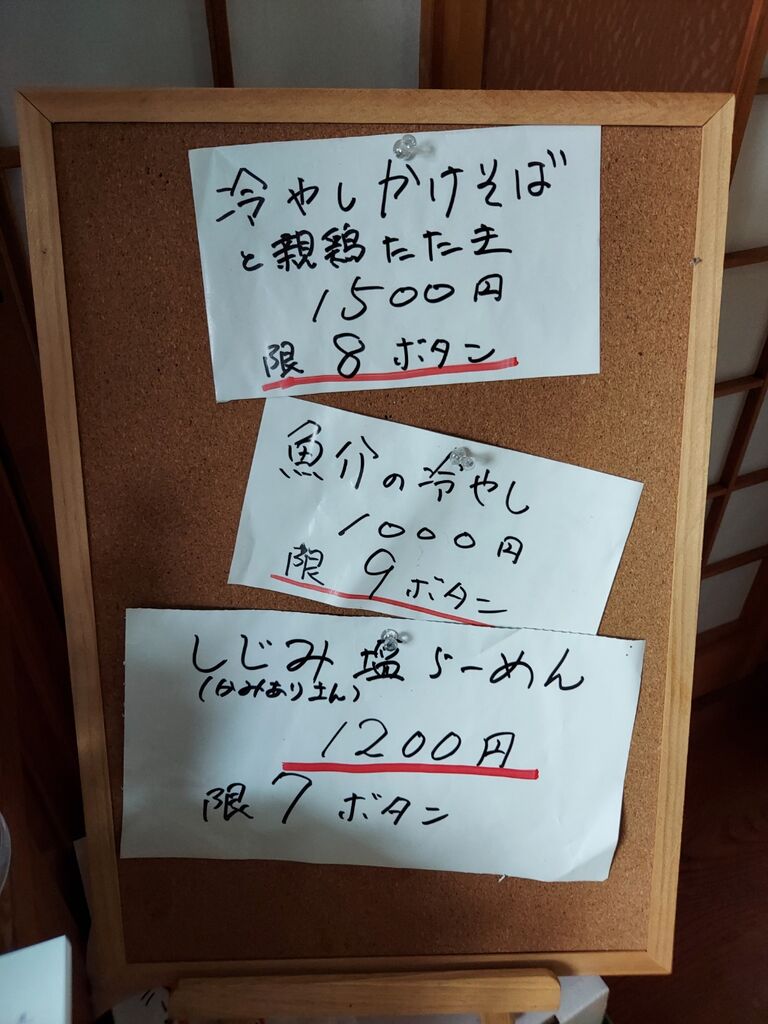 冷やしかけそば
と親鶏たたき
1500円
限 8 ボタン
魚介の冷やし
1000円
限 9 ボタン
しじみ塩らーめん
1200円
限 7 ボタン